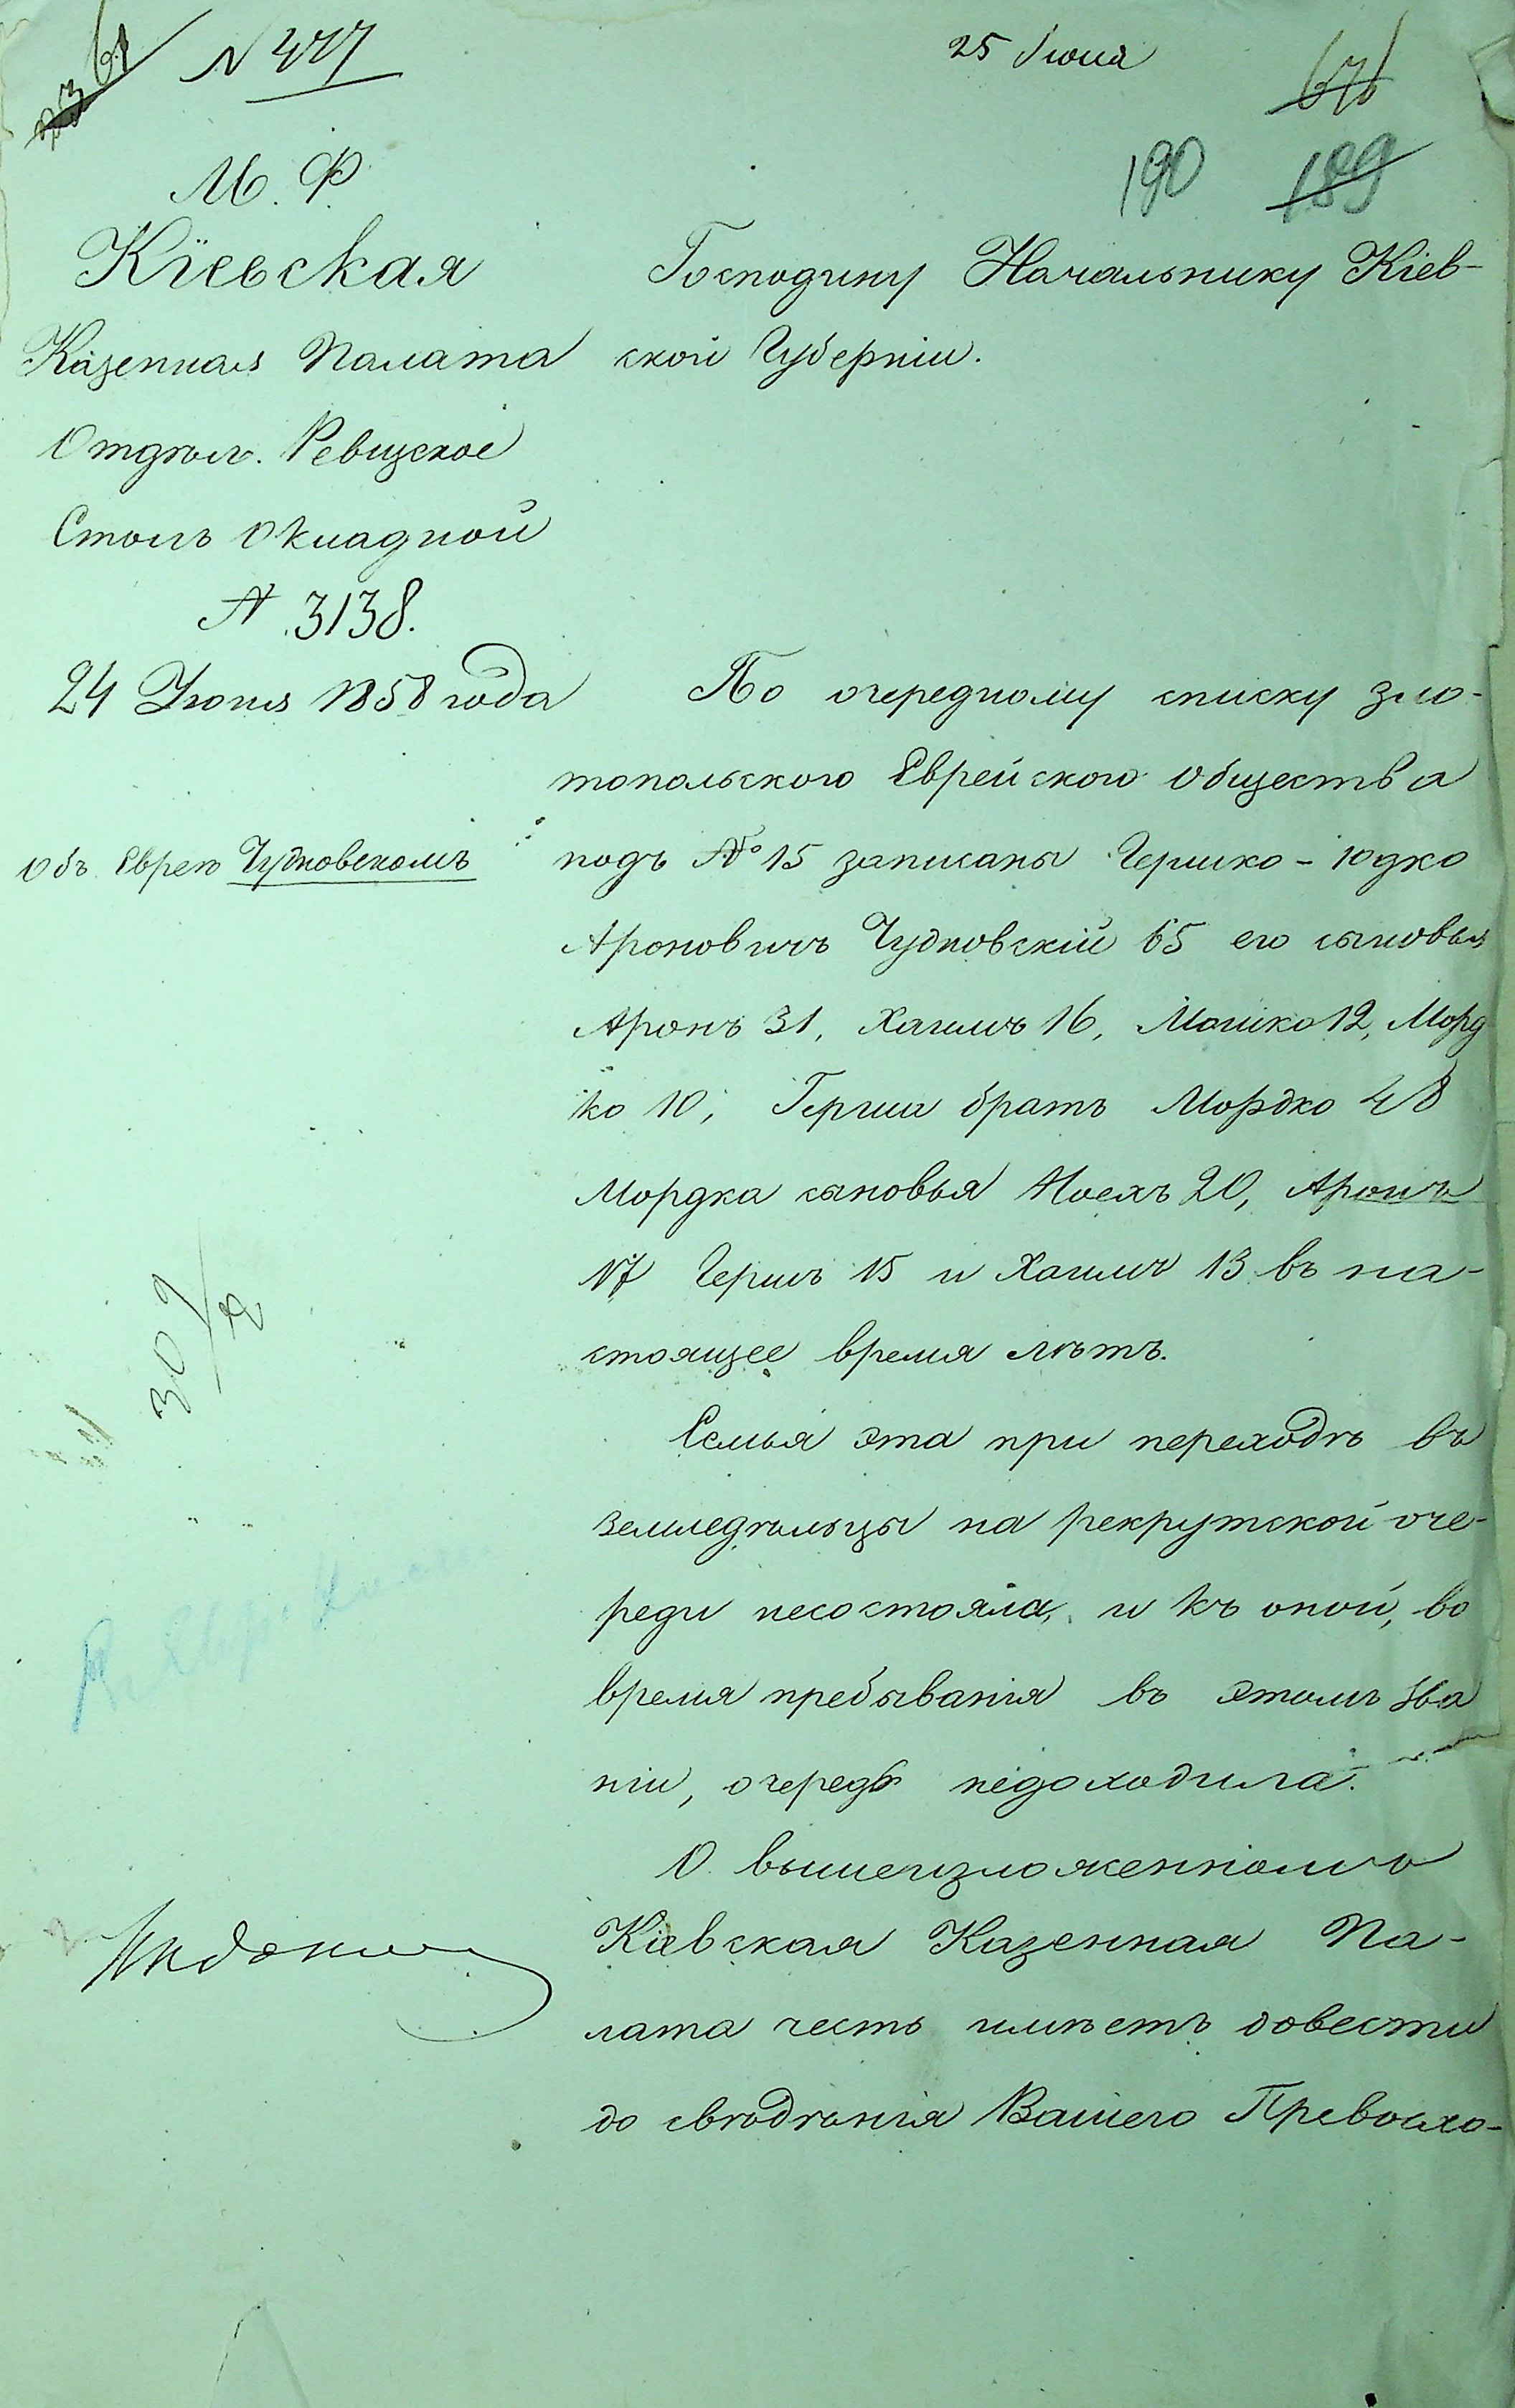 61
N 477
25 Июня
67
190 189
М. Ф.
Кіевская
Казенная Палата
Отдѣл. Ревизское
Столъ Окладной
№ 3138.
24 Июня 1858 года
Объ Евреѣ Чудновскомъ
Господину Начальнику Кіев-
ской Губерніи.
По очередному списку зло-
топольского Еврейского общества
подъ № 15 записаны Гершко-Юдко
Ароновичъ Чудновскій 65 его сыновья
Аронъ 31, Хаимъ 16, Мошко 12, Морд
ко 10, Герша братъ Мордко 48
Мордка сыновья 20, Аронъ
17 Гершъ 15 и Хаимъ 13 въ на-
стоящее время лѣтъ.
Семья эта при переходѣ въ
земледѣльцы на рекрутской оче-
реди несостояла, и къ оной, во
время пребыванія въ этомъ зва
ніи, очередь недоходила.
О вышеизложенномъ
Кіевская Казенная Па-
лата честь имѣетъ довести
до свѣдѣнія Вашего Превосхо-
30